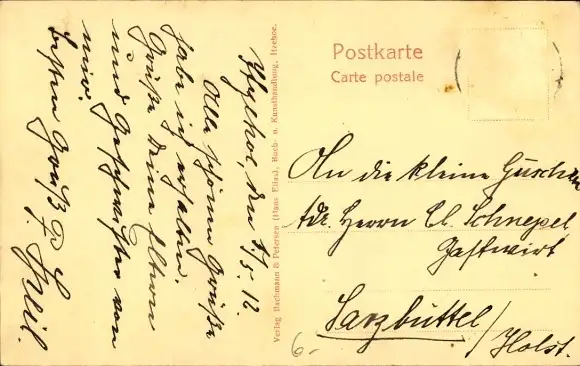 Postkarte
Carte postale
Itzehoe, den 7/5. 12.
Alle schönen Grüße
habe ich erhalten.
Grüße Deine Eltern
und Geschwister von
mir.
Besten Gruß
An die kleine
Adr. Herrn Cl. Schnepel
Gastwirt
Sarzbüttel/
Holst.
6.-
Verlag Bachmann & Petersen (Hans Eilas), Buch- u. Kunsthandlung, Itzehoe.